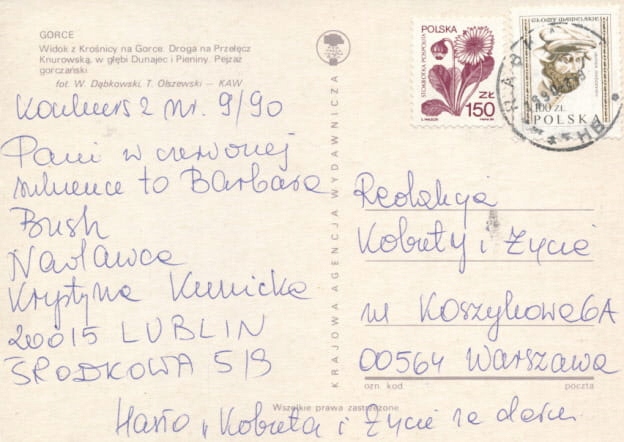 GORCE
Widok z Krośnicy na Gorce. Droga na Przełęcz
Knurowską, w głębi Dunajec i Pieniny. Pejzaż
gorczański
fot. W. Dąbkowski, T. Olszewski — KAW
Konkurs 2 nr. 9/90
Pani w czerwonej
sukience to Barbara
Bush
Nadawca
Krystyna Kunicka
20015 LUBLIN
ŚRODKOWA 5/3
KRAJOWA AGENCJA WYDAWNICZA
POLSKA
STOKROTKA POSPOLITA
ZŁ
150
GŁOWY WAWELSKIE
100 ZŁ
POLSKA
Redakcja
Kobiety i Życie
ul Koszykowa 6A
00564 Warszawa
ozn. kod
poczta
Wszelkie prawa zastrzeżone
Hasło „Kobieta i Życie